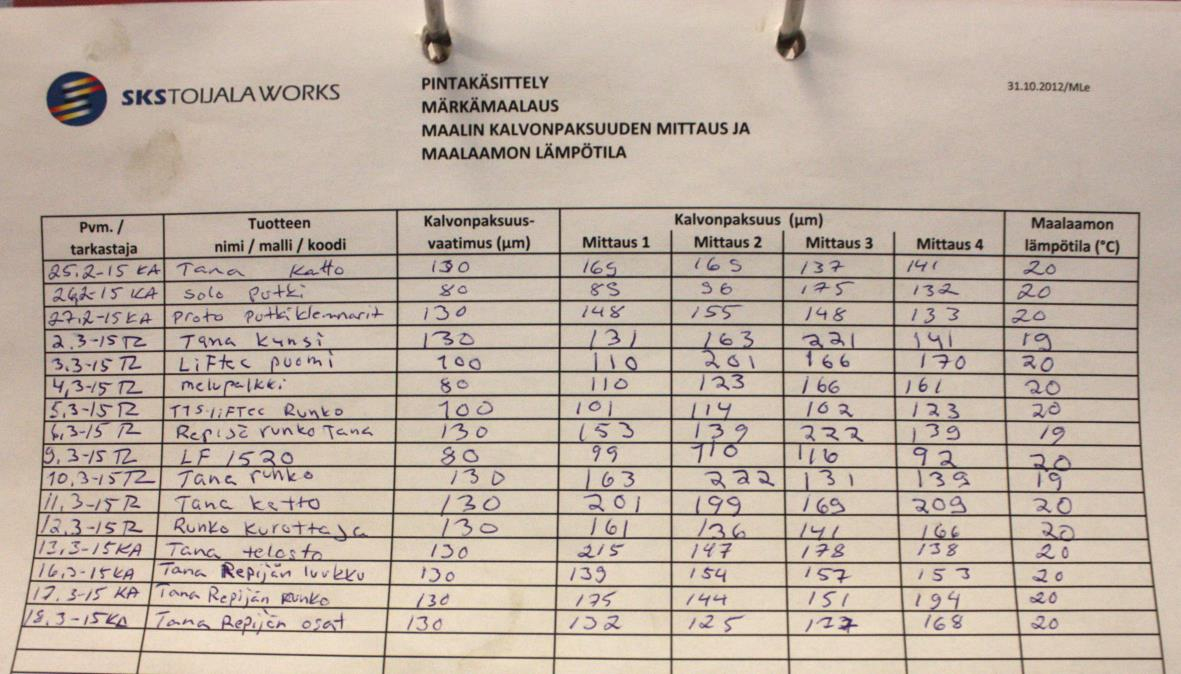 SKS TOIJALA WORKS
PINTAKÄSITTELY
MÄRKÄMAALAUS
MAALIN KALVONPAKSUUDEN MITTAUS JA
MAALAAMON LÄMPÖTILA
31.10.2012/MLe
Pvm. / tarkastaja Tuotteen nimi / malli / koodi Kalvonpaksuus-vaatimus (µm) Kalvonpaksuus (µm) Mittaus 1 Mittaus 2 Mittaus 3 Mittaus 4 Maalaamon lämpötila (°C)
25.2-15 KA Tana Katto 130 165 165 137 141 20
26.2-15 KA Solo putki 80 85 96 175 132 20
27.2-15 KA Proto putkiklemmarit 130 148 155 148 133 20
2.3-15 TL Tana kansi 130 131 163 221 141 19
3.3-15 TL LiFtec puomi 100 110 201 166 170 20
4.3-15 TL melupalkki 80 110 123 166 161 20
5.3-15 TL TTS-liFTec Runko 100 101 114 102 123 20
6.3-15 TL Repijä runko Tana 130 153 139 222 139 19
9.3-15 TL LF 1520 80 99 110 116 92 20
10.3-15 TL Tana runko 130 163 222 131 139 19
11.3-15 TL Tana katto 130 201 199 169 209 20
12.3-15 TL Runko kurottaja 130 161 136 141 166 20
13.3-15 KA Tana telasto 130 215 147 178 138 20
16.3-15 KA Tana Repijän luukku 130 139 154 157 153 20
17.3-15 KA Tana Repijän Runko 130 175 144 151 194 20
18.3-15 KA Tana Repijän osat 130 132 125 168 20